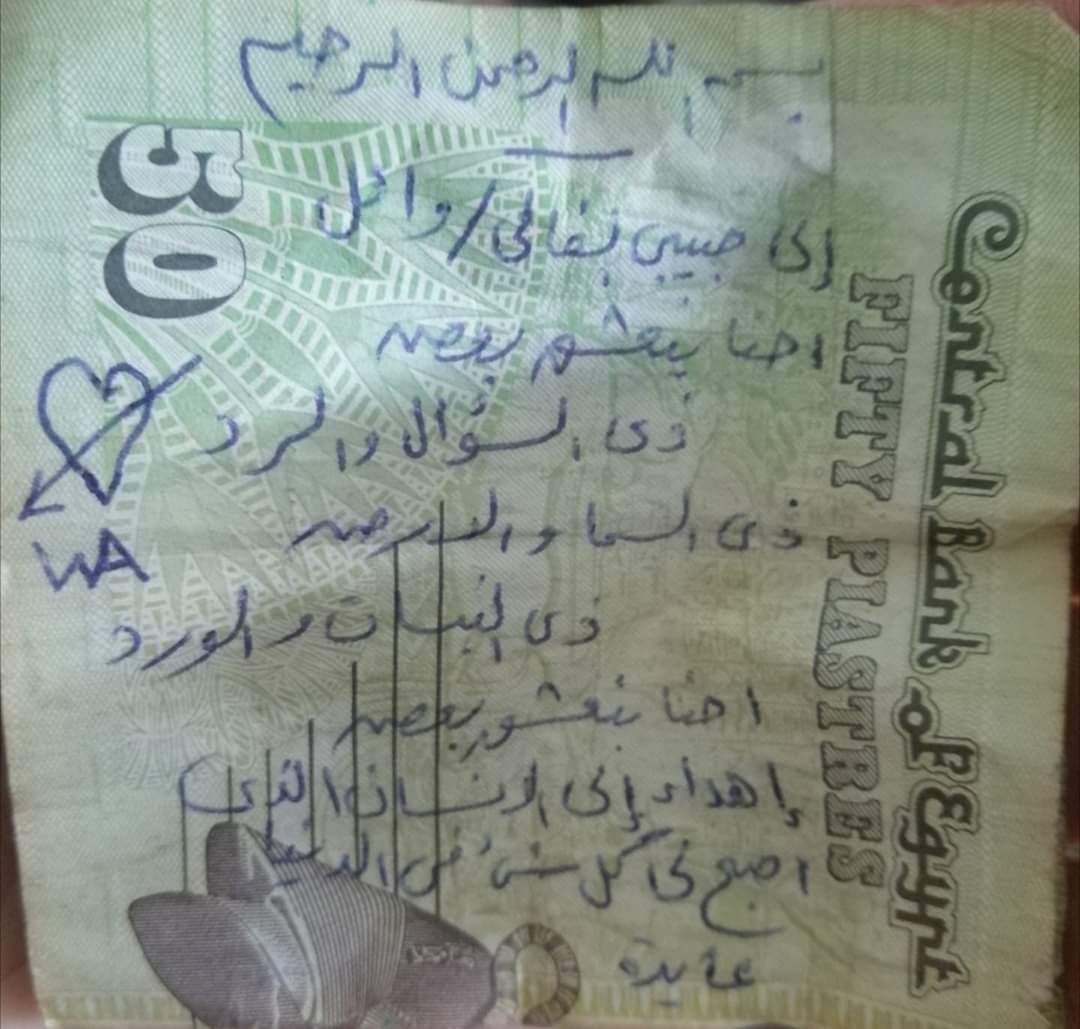 بسم الله الرحمن الرحيم
إلى حبيبى الغالى / وائل
احنا بنعشق بعض
ذى السؤال والرد
ذى السما والارض
ذى النبات والورد
احنا بنعشق بعض
إهداء إلى الانسان الذى
اصبح لى كل شئ فى الدنيا
عايدة
WA
50
Central Bank of Egypt
FIFTY PIASTRES